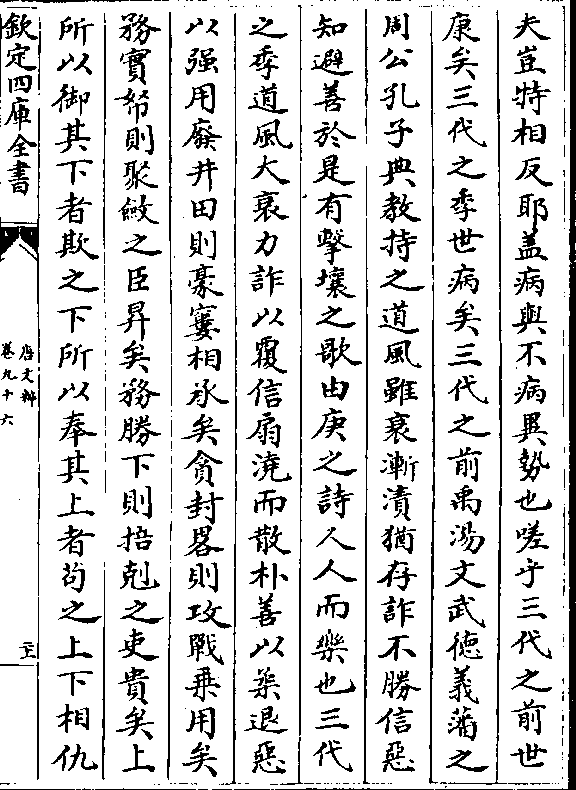 夫豈特相反耶盖病與不病異勢也嗟乎三代之前世
康矣三代之季世病矣三代之前禹湯文武德義藩之
周公孔子典教持之道風雖衰漸漬猶存詐不勝信惡
知避善於是有擊壤之歌由庚之詩人人而樂也三代
之季道風大衰力詐以覆信扇澆而散朴善以柔退惡
以强用廢井田則豪窶相承矣貪封畧則攻戰乗用矣
務實帑則聚斂之臣昇矣務勝下則掊剋之吏貴矣上
所以御其下者欺之下所以奉其上者苟之上下相仇
欽定四庫全書
唐文粹
卷九十六